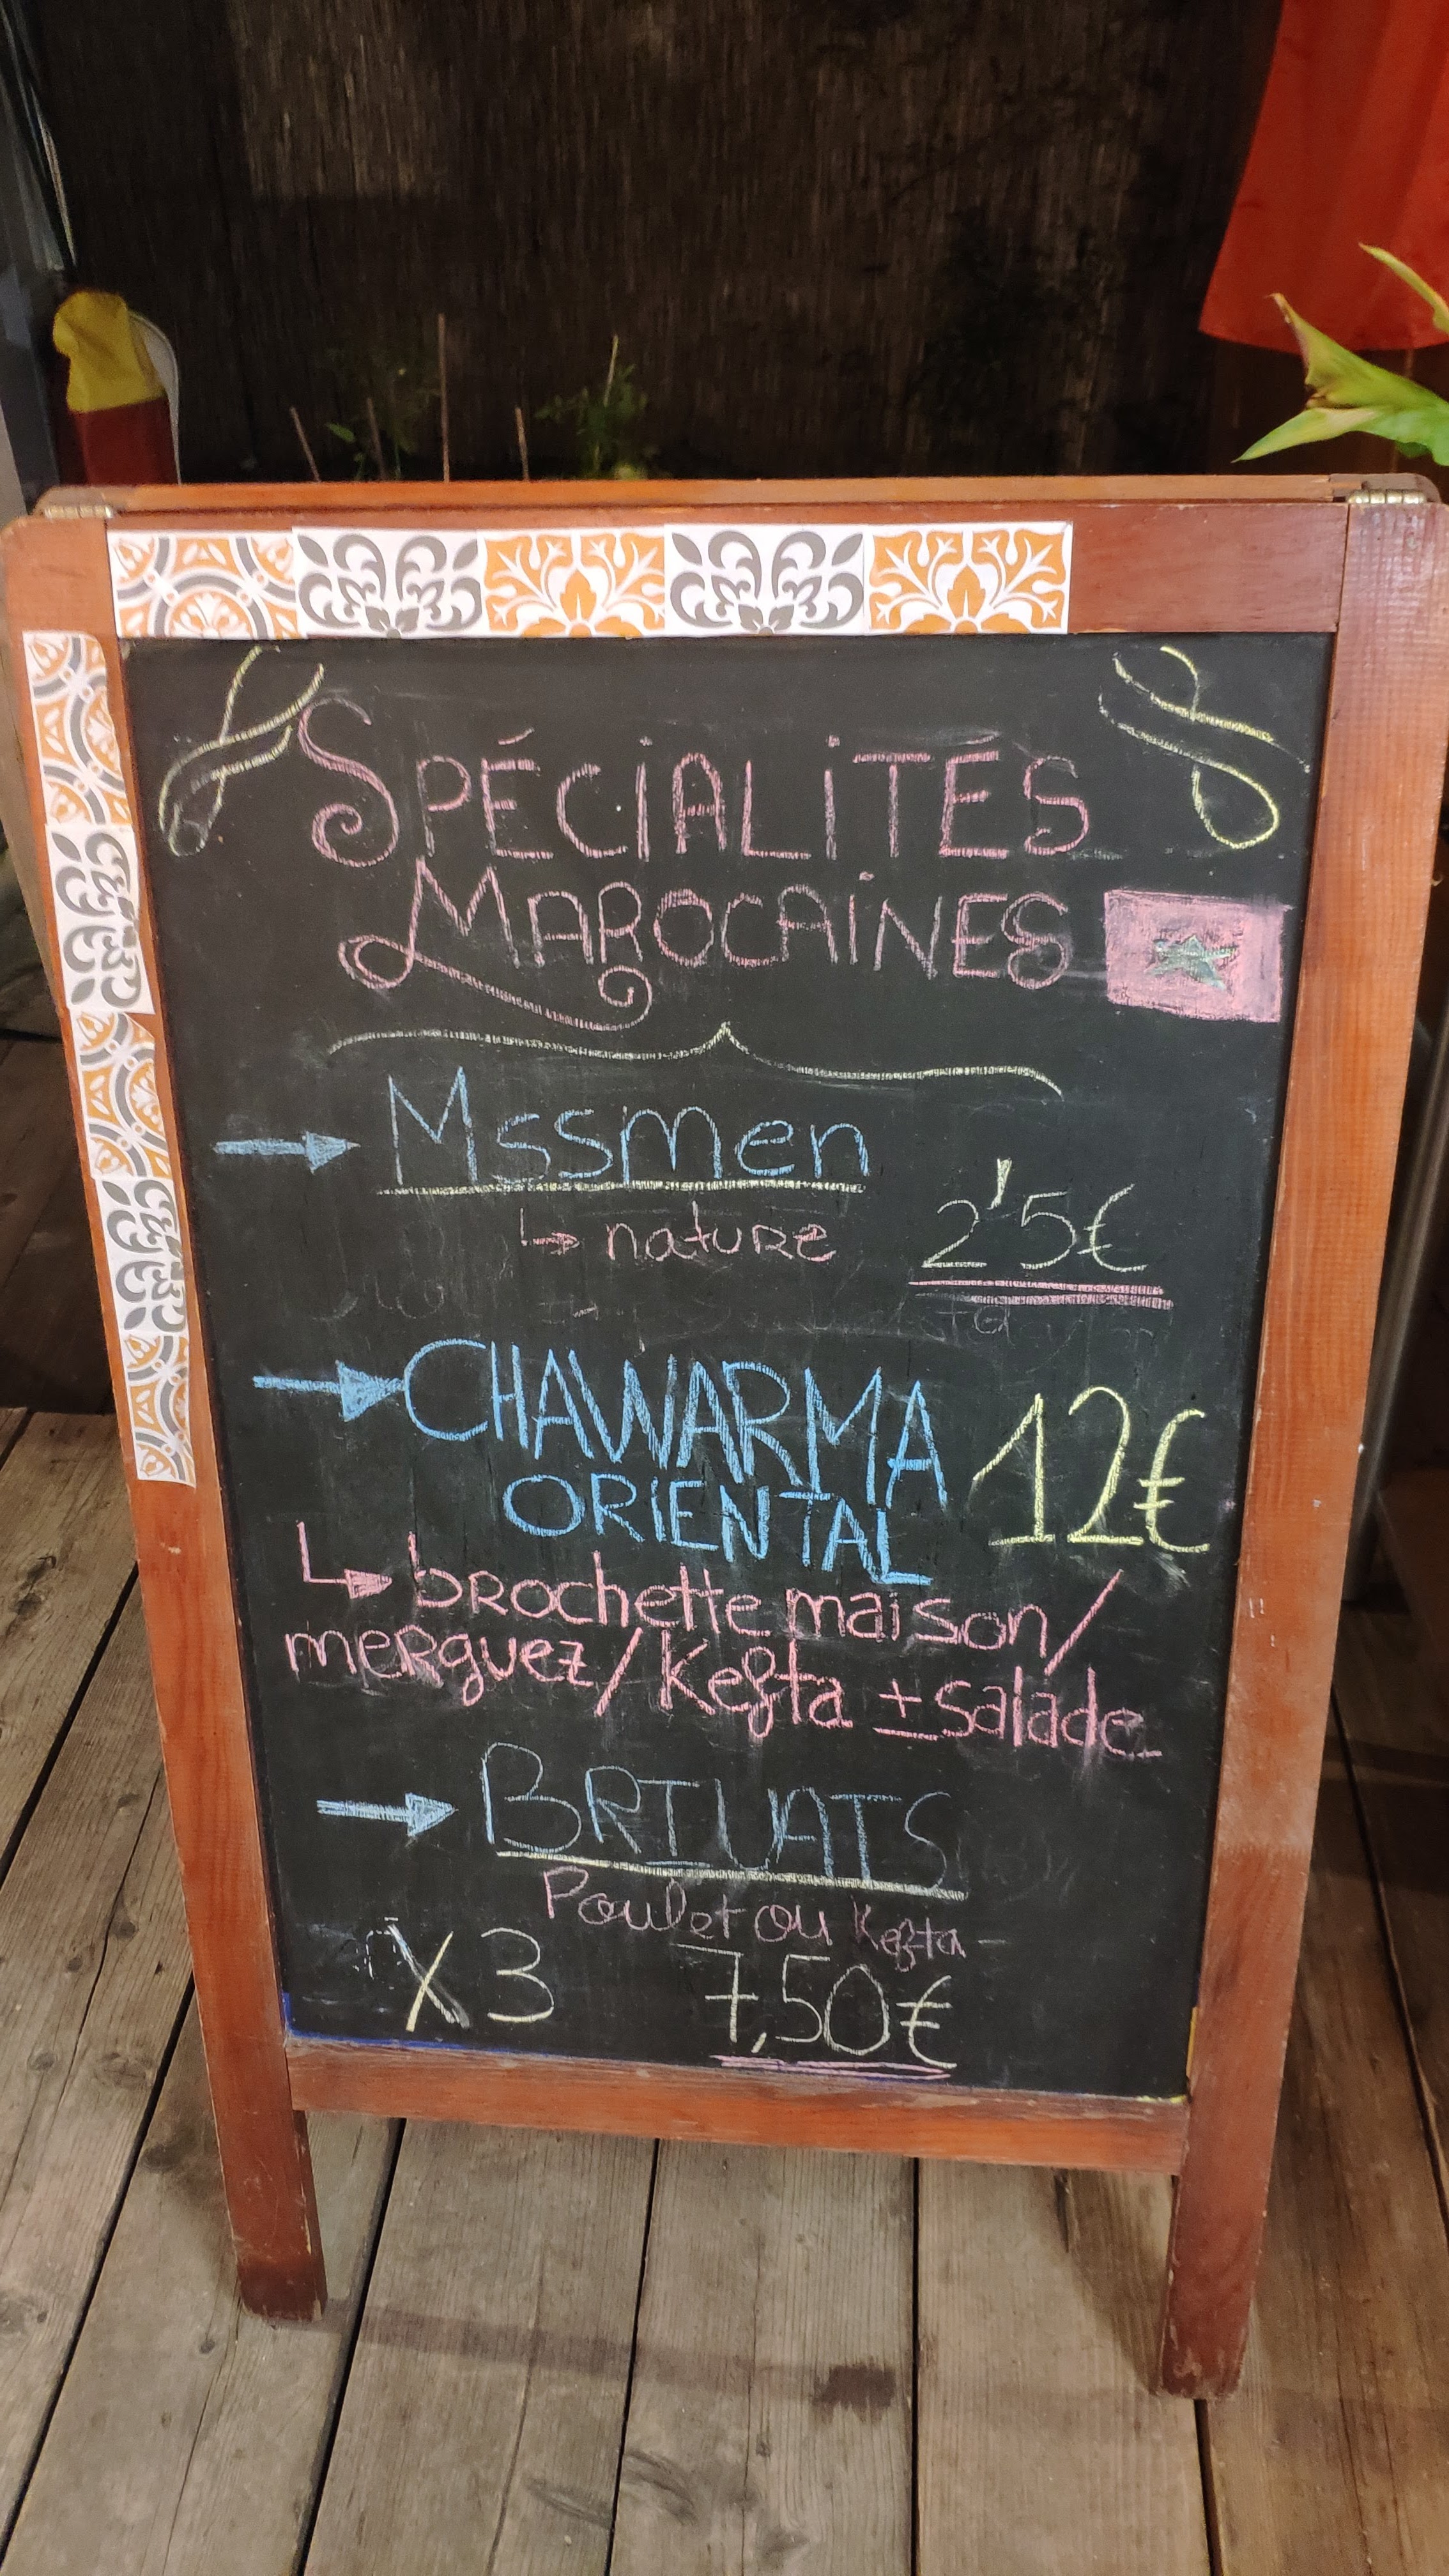 SPÉCIALITÉS
MAROCAINES
Mssmen
nature 2'5€
CHAWARMA 12€
ORIENTAL
brochette maison/
merguez/Kefta + salade
BRIUATS
Poulet ou Kefta
X3 7,50€